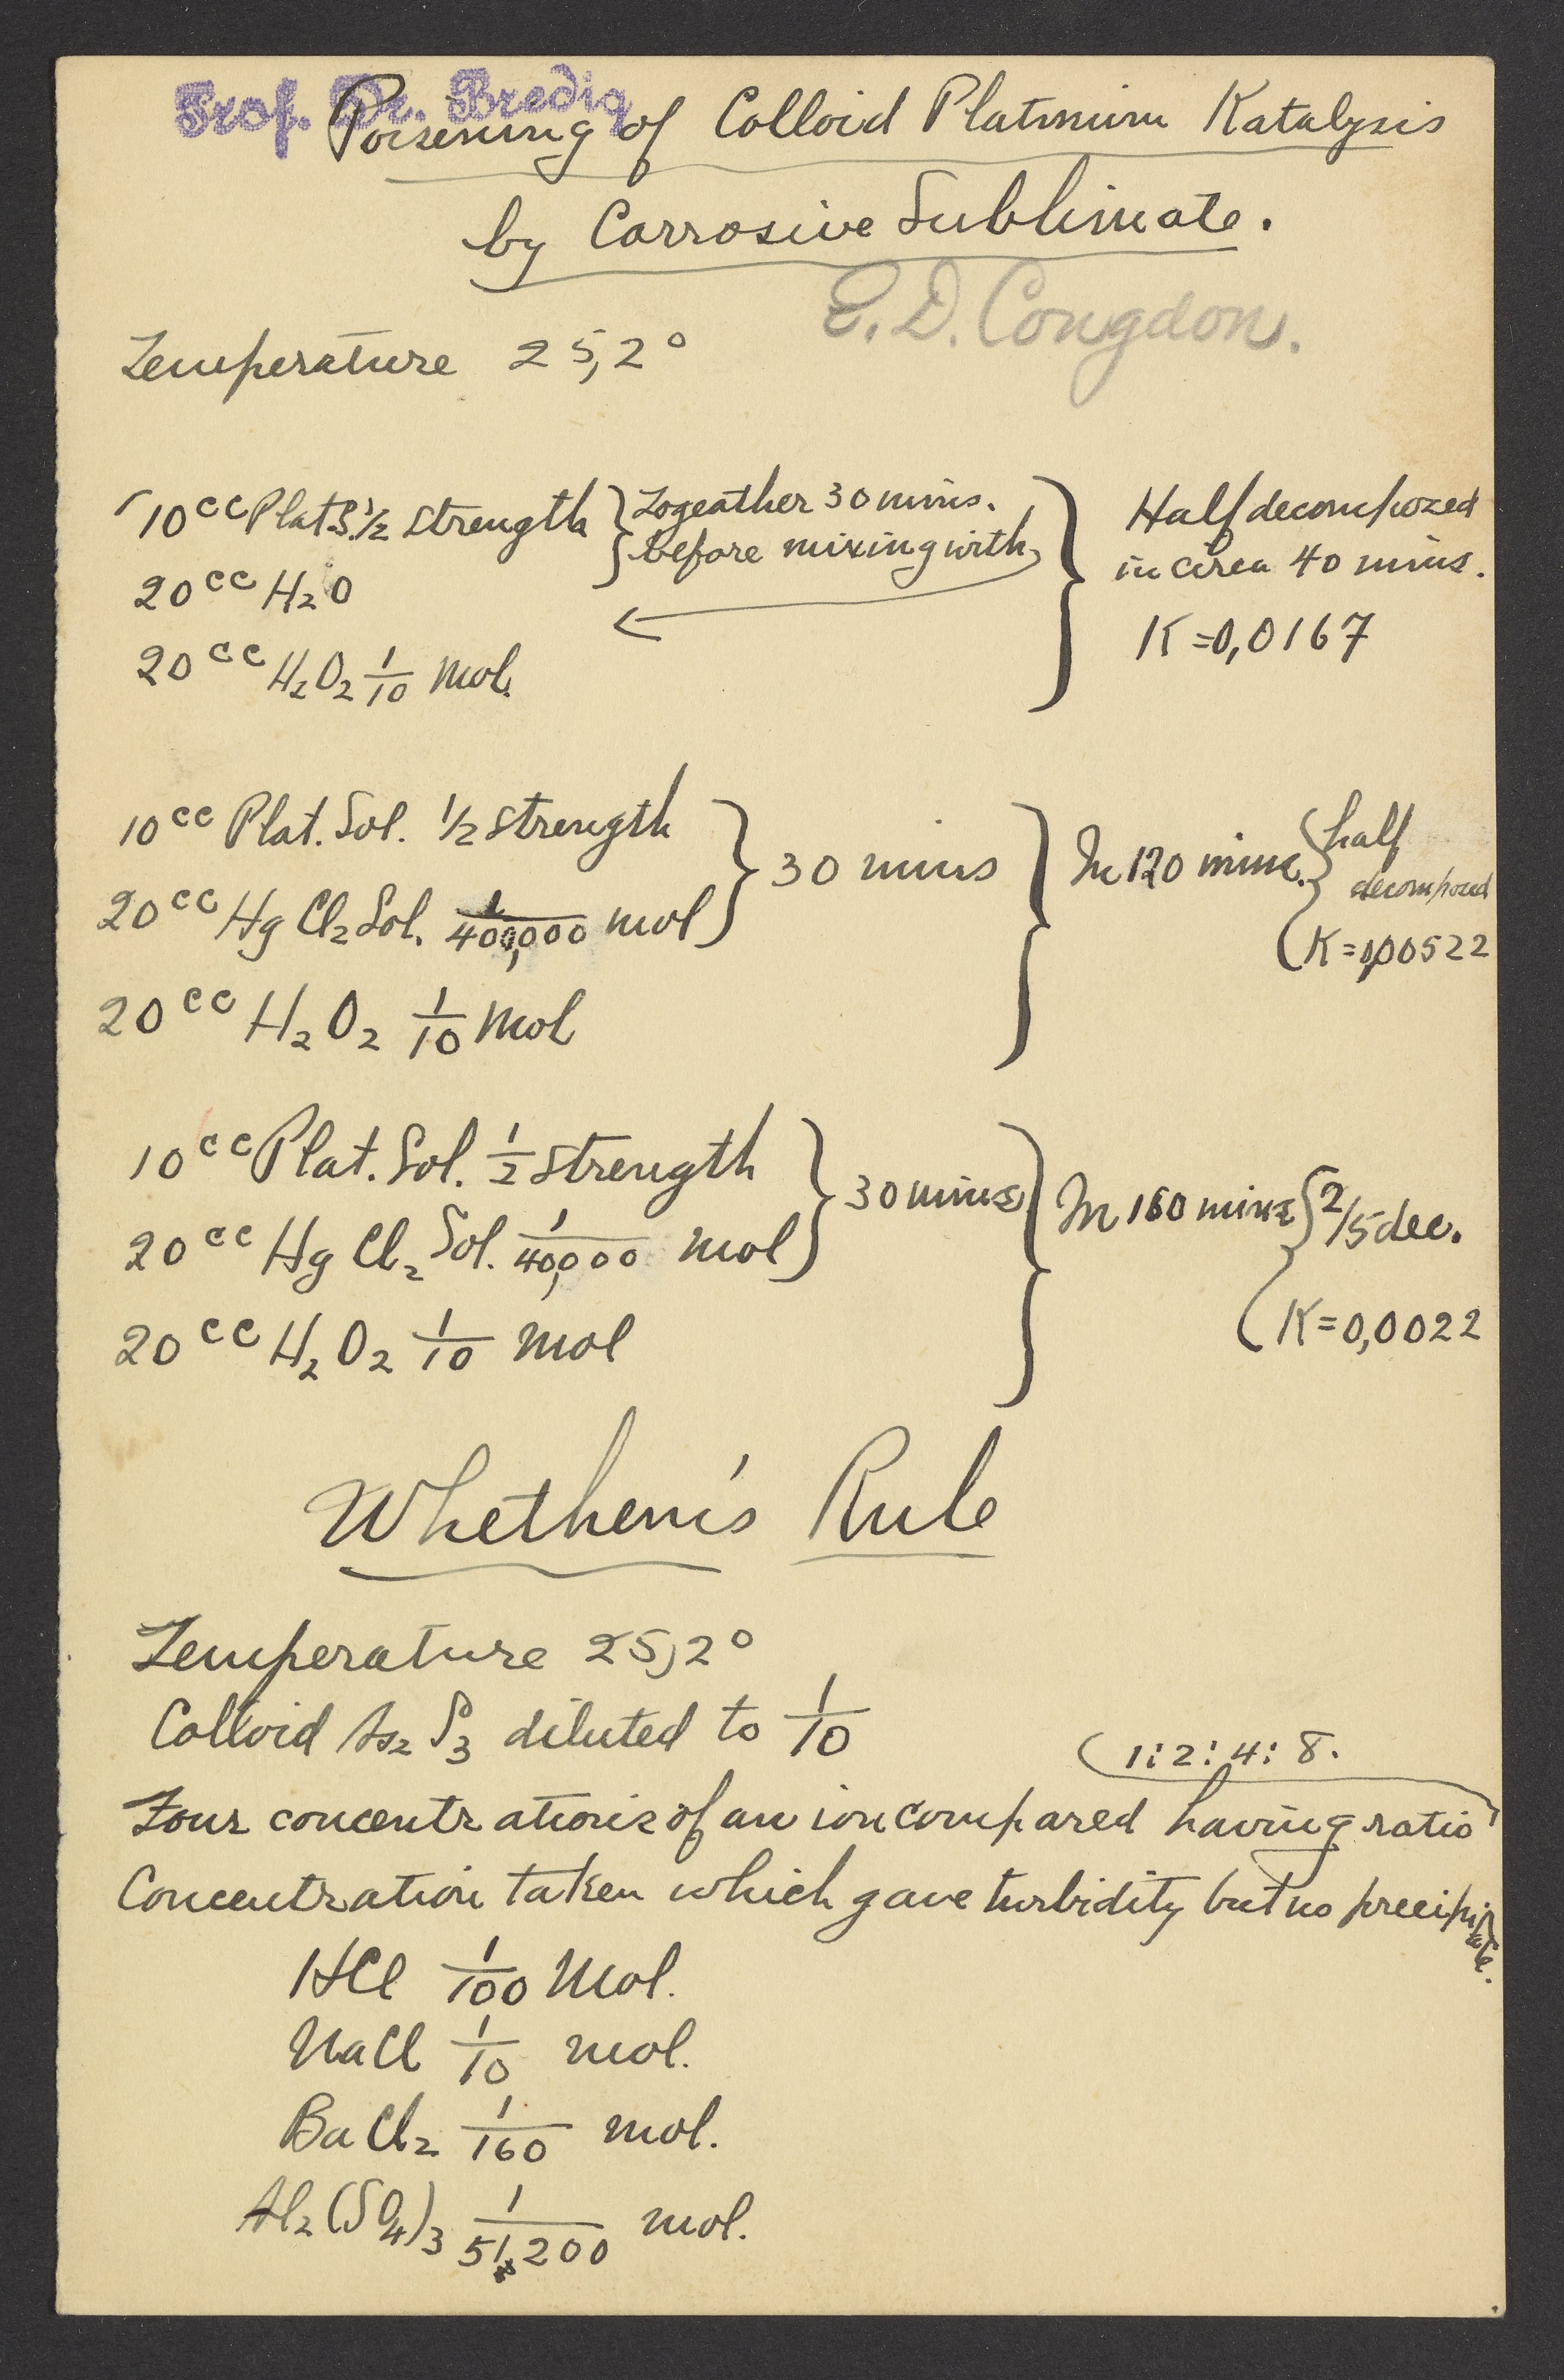 Prof. Dr. Bredig
Poisening of Colloid Platinium Katalysis
by Carrosive Sublimate.
E. D. Congdon.
Temperature 25,2°
10cc Plat. S. 1/2 strength } Togeather 30 mins. before mixing with
20cc H2O
20cc H2O2 1/10 mol.
} Half decomposed
in circa 40 mins.
K=0,0167
10cc Plat. Sol. 1/2 strength
20cc HgCl2 Sol. 1/400,000 mol
} 30 mins
20cc H2O2 1/10 mol
} In 120 mins. { half
decomposed
K=0,00522
10cc Plat. Sol. 1/2 strength
20cc HgCl2 Sol. 1/40,000 mol
} 30 mins
20cc H2O2 1/10 mol
} In 160 mins { 2/5 dec.
K=0,0022
Whethem's Rule
Temperature 25,2°
Colloid As2S3 diluted to 1/10
1:2:4:8.
Four concentrations of an ion compared having ratio
Concentration taken which gave turbidity but no precipitate.
HCl 1/100 Mol.
NaCl 1/10 mol.
BaCl2 1/160 mol.
Al2(SO4)3 1/51,200 mol.